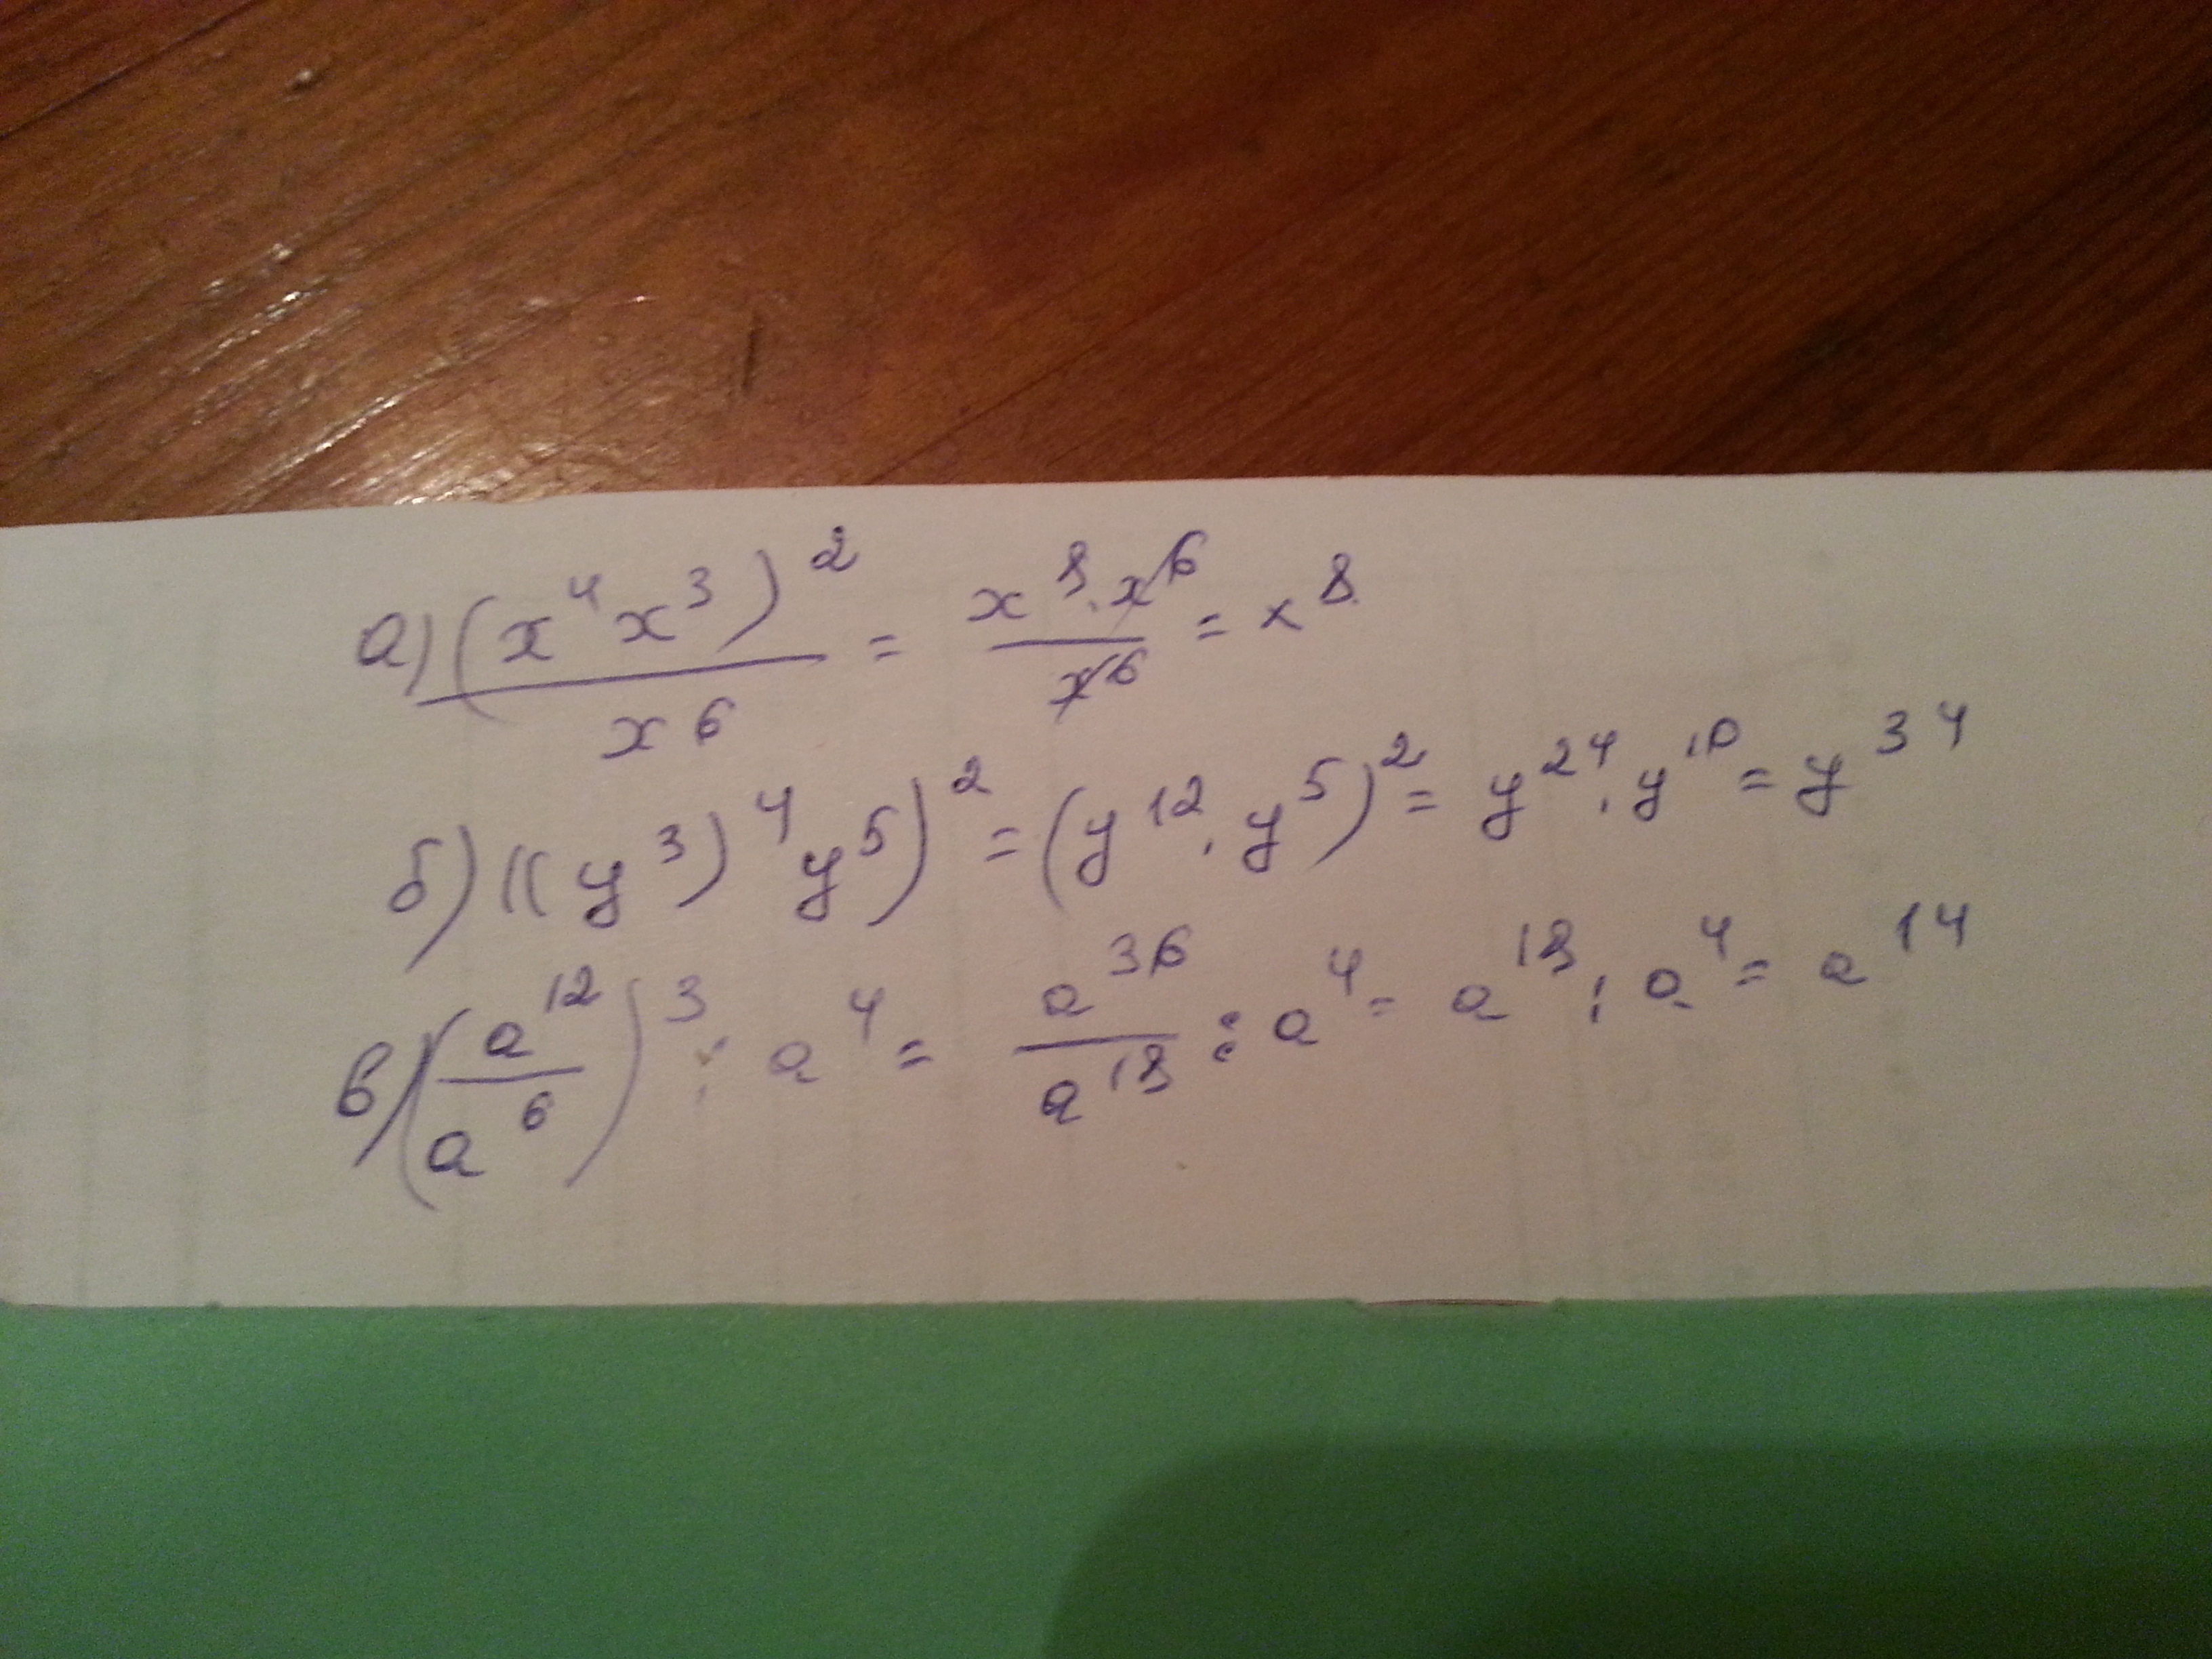 а) (x⁴x³)²/x⁶ = x⁸·x⁶/x⁶ = x⁸
б) ((y³)⁴y⁵)² = (y¹²·y⁵)² = y²⁴·y¹⁰ = y³⁴
в) (a¹²/a⁶)³ : a⁴ = a³⁶/a¹⁸ : a⁴ = a¹⁸ : a⁴ = a¹⁴